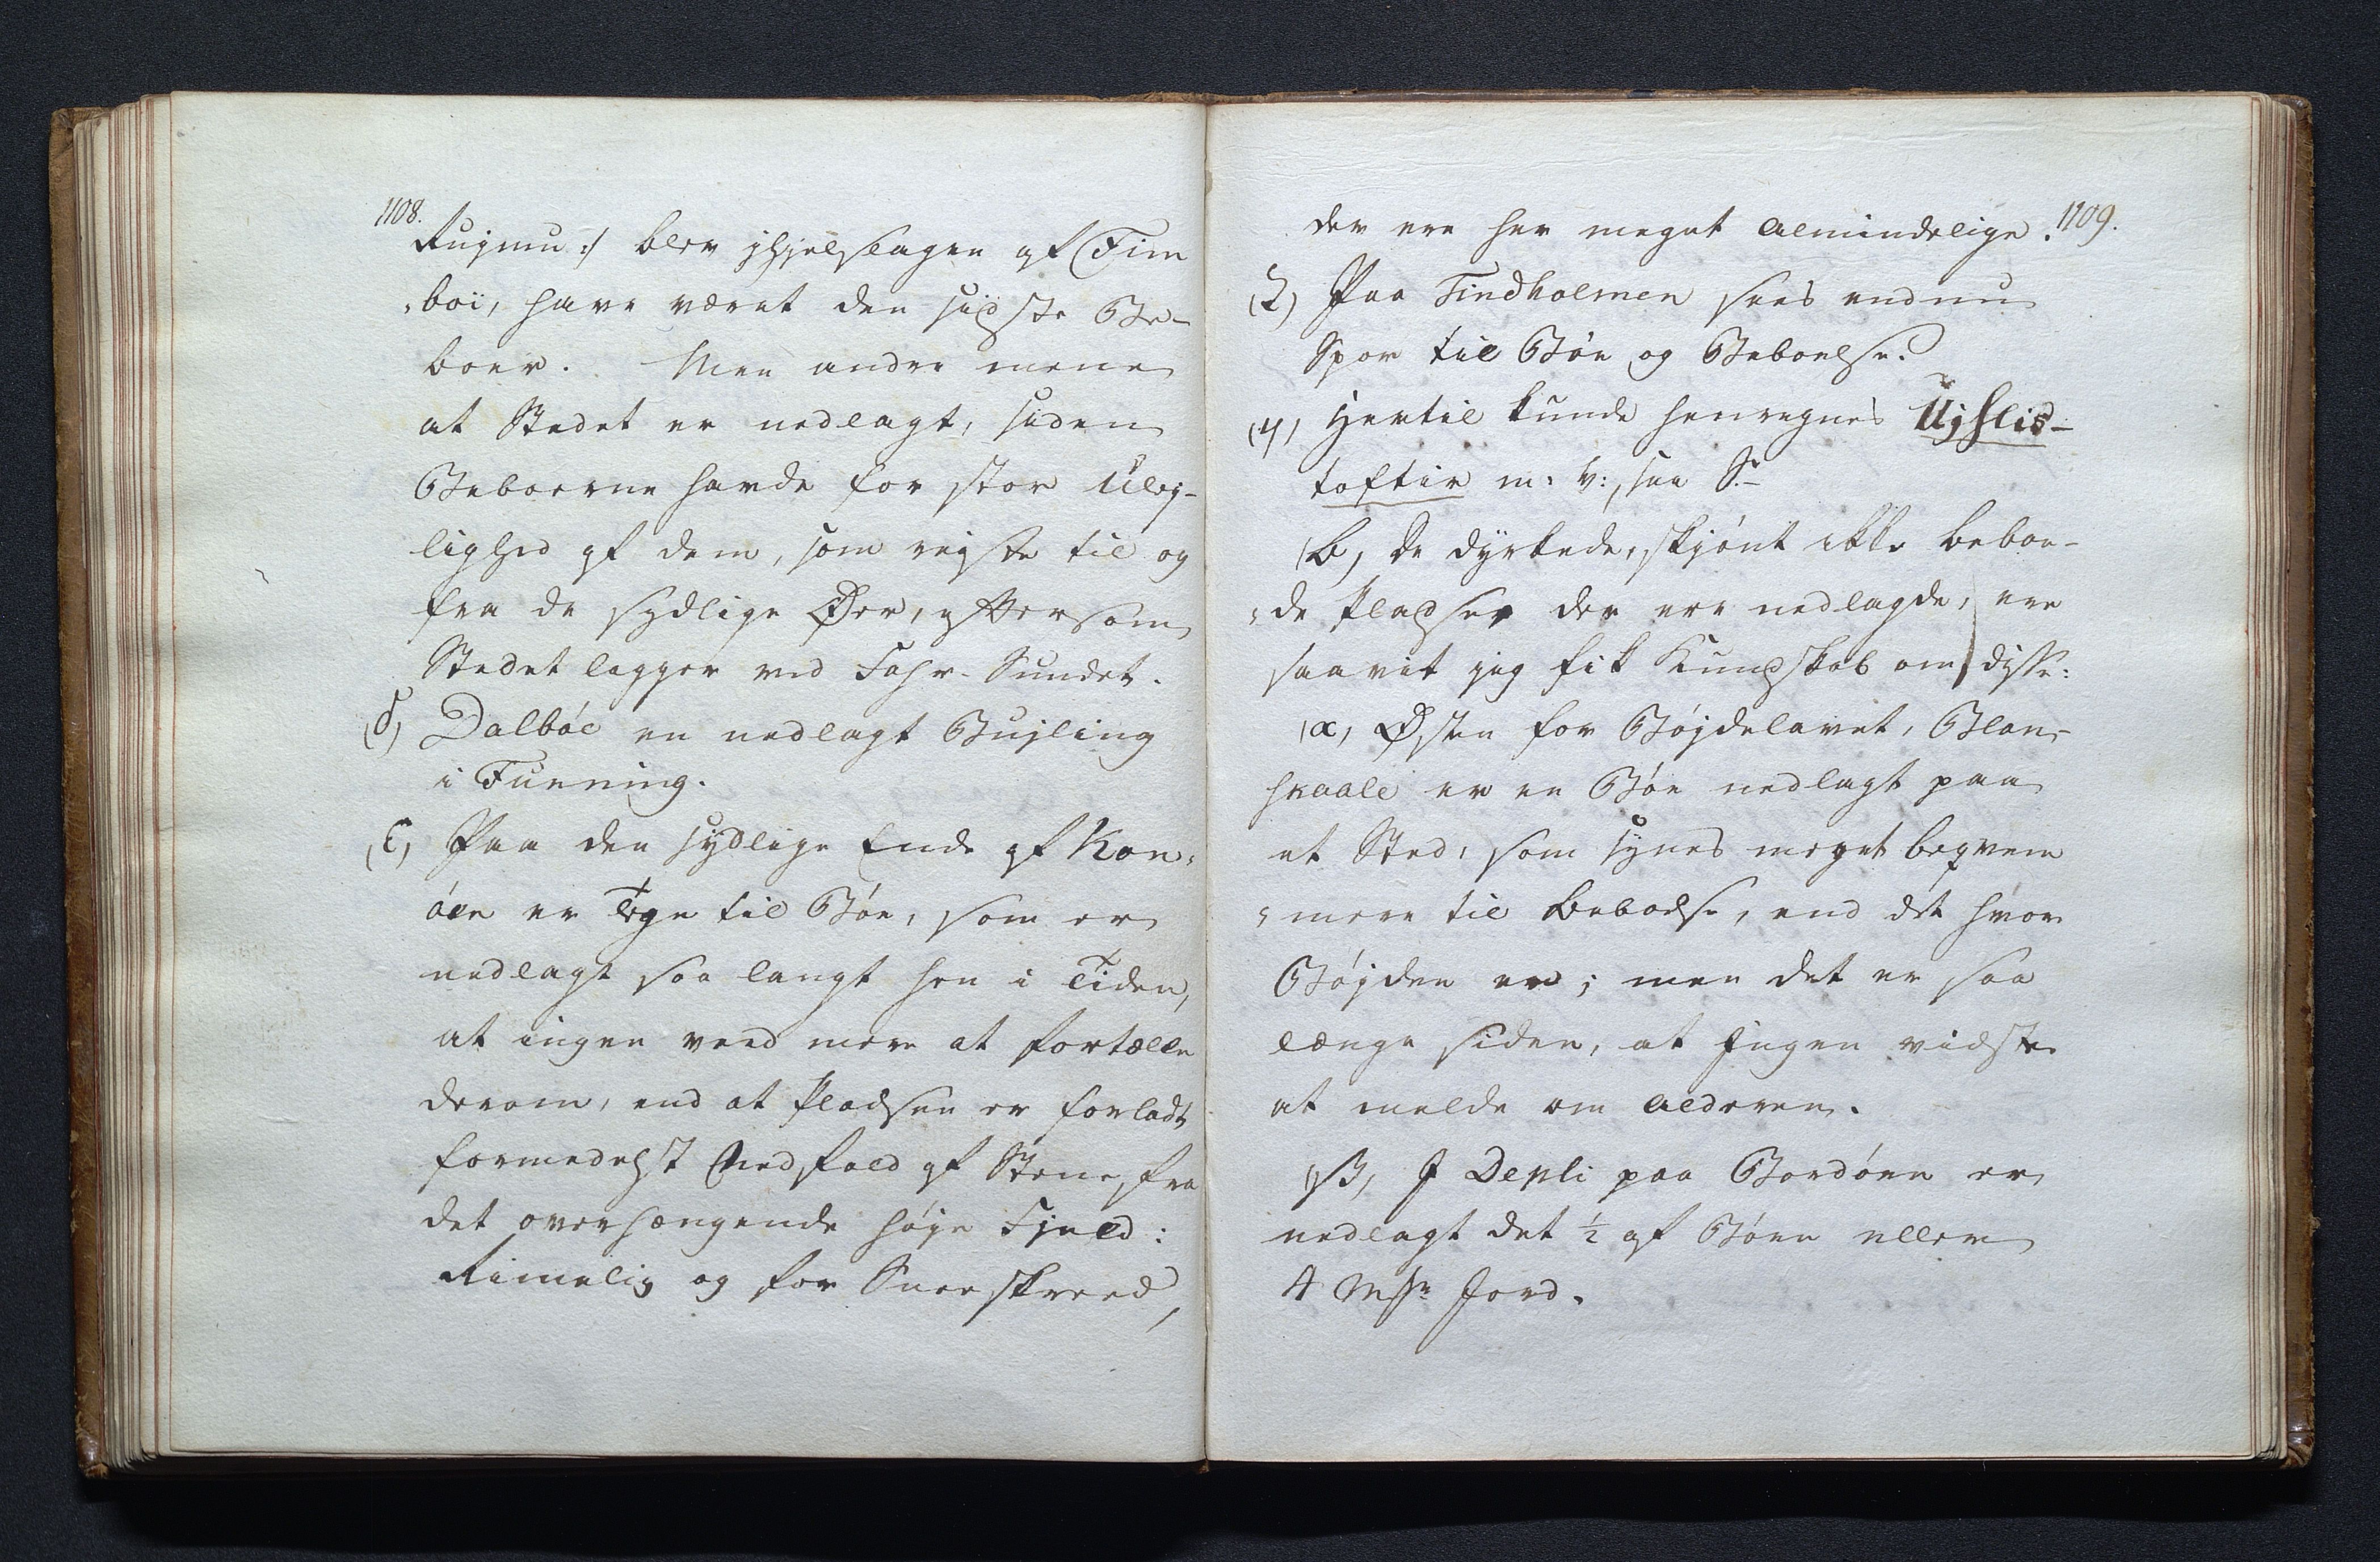 1108.
Rujmu :/ blev ihjelslagen af Fim
boi, have været den sidste Be-
boer. Men andre mene
at Stedet er nedlagt, siden
Beboerne havde for stor Ulej-
lighed af dem, som rejste til og
fra de sydlige Øer, eftersom
Stedet legger ved Fahr-Sundet.
(δ) Dalbóe en nedlagt Bujling
i Funning.
(ε) Paa den sydlige Ende af Kon-
óen er Tegn til Bóe, som er
nedlagt saa langt hen i Tiden,
at ingen veed mere at fortælle
derom, end at Pladsen er forladt
formedelst Nedfald af Stene fra
det overhængende hóje Fjeld:
Rimelig og for Sneeskreed,
1109.
der ere her meget almindelige.
(ζ) Paa Tindholmen sees endnu
Spor til Bóe og Beboelse.
(η) Hertil kunde henregnes
toftir m: v:, see S:
(B, De dyrkede, skjónt ikke beboe-
de Pladser der ere nedlagde, ere
saavit jeg fik Kundskab om, disse:
(α, Østen for Bójdelavet,
skaale er en Bóe nedlagt paa
et Sted, som synes meget beqvem
mere til Beboelse, end det hvor
Bójden er; men det er saa
længe siden, at Ingen vidste
at melde om Alderen.
(β, I Depli paa Bordóen er
nedlagt det ½ af Bóen eller
4 Jord.